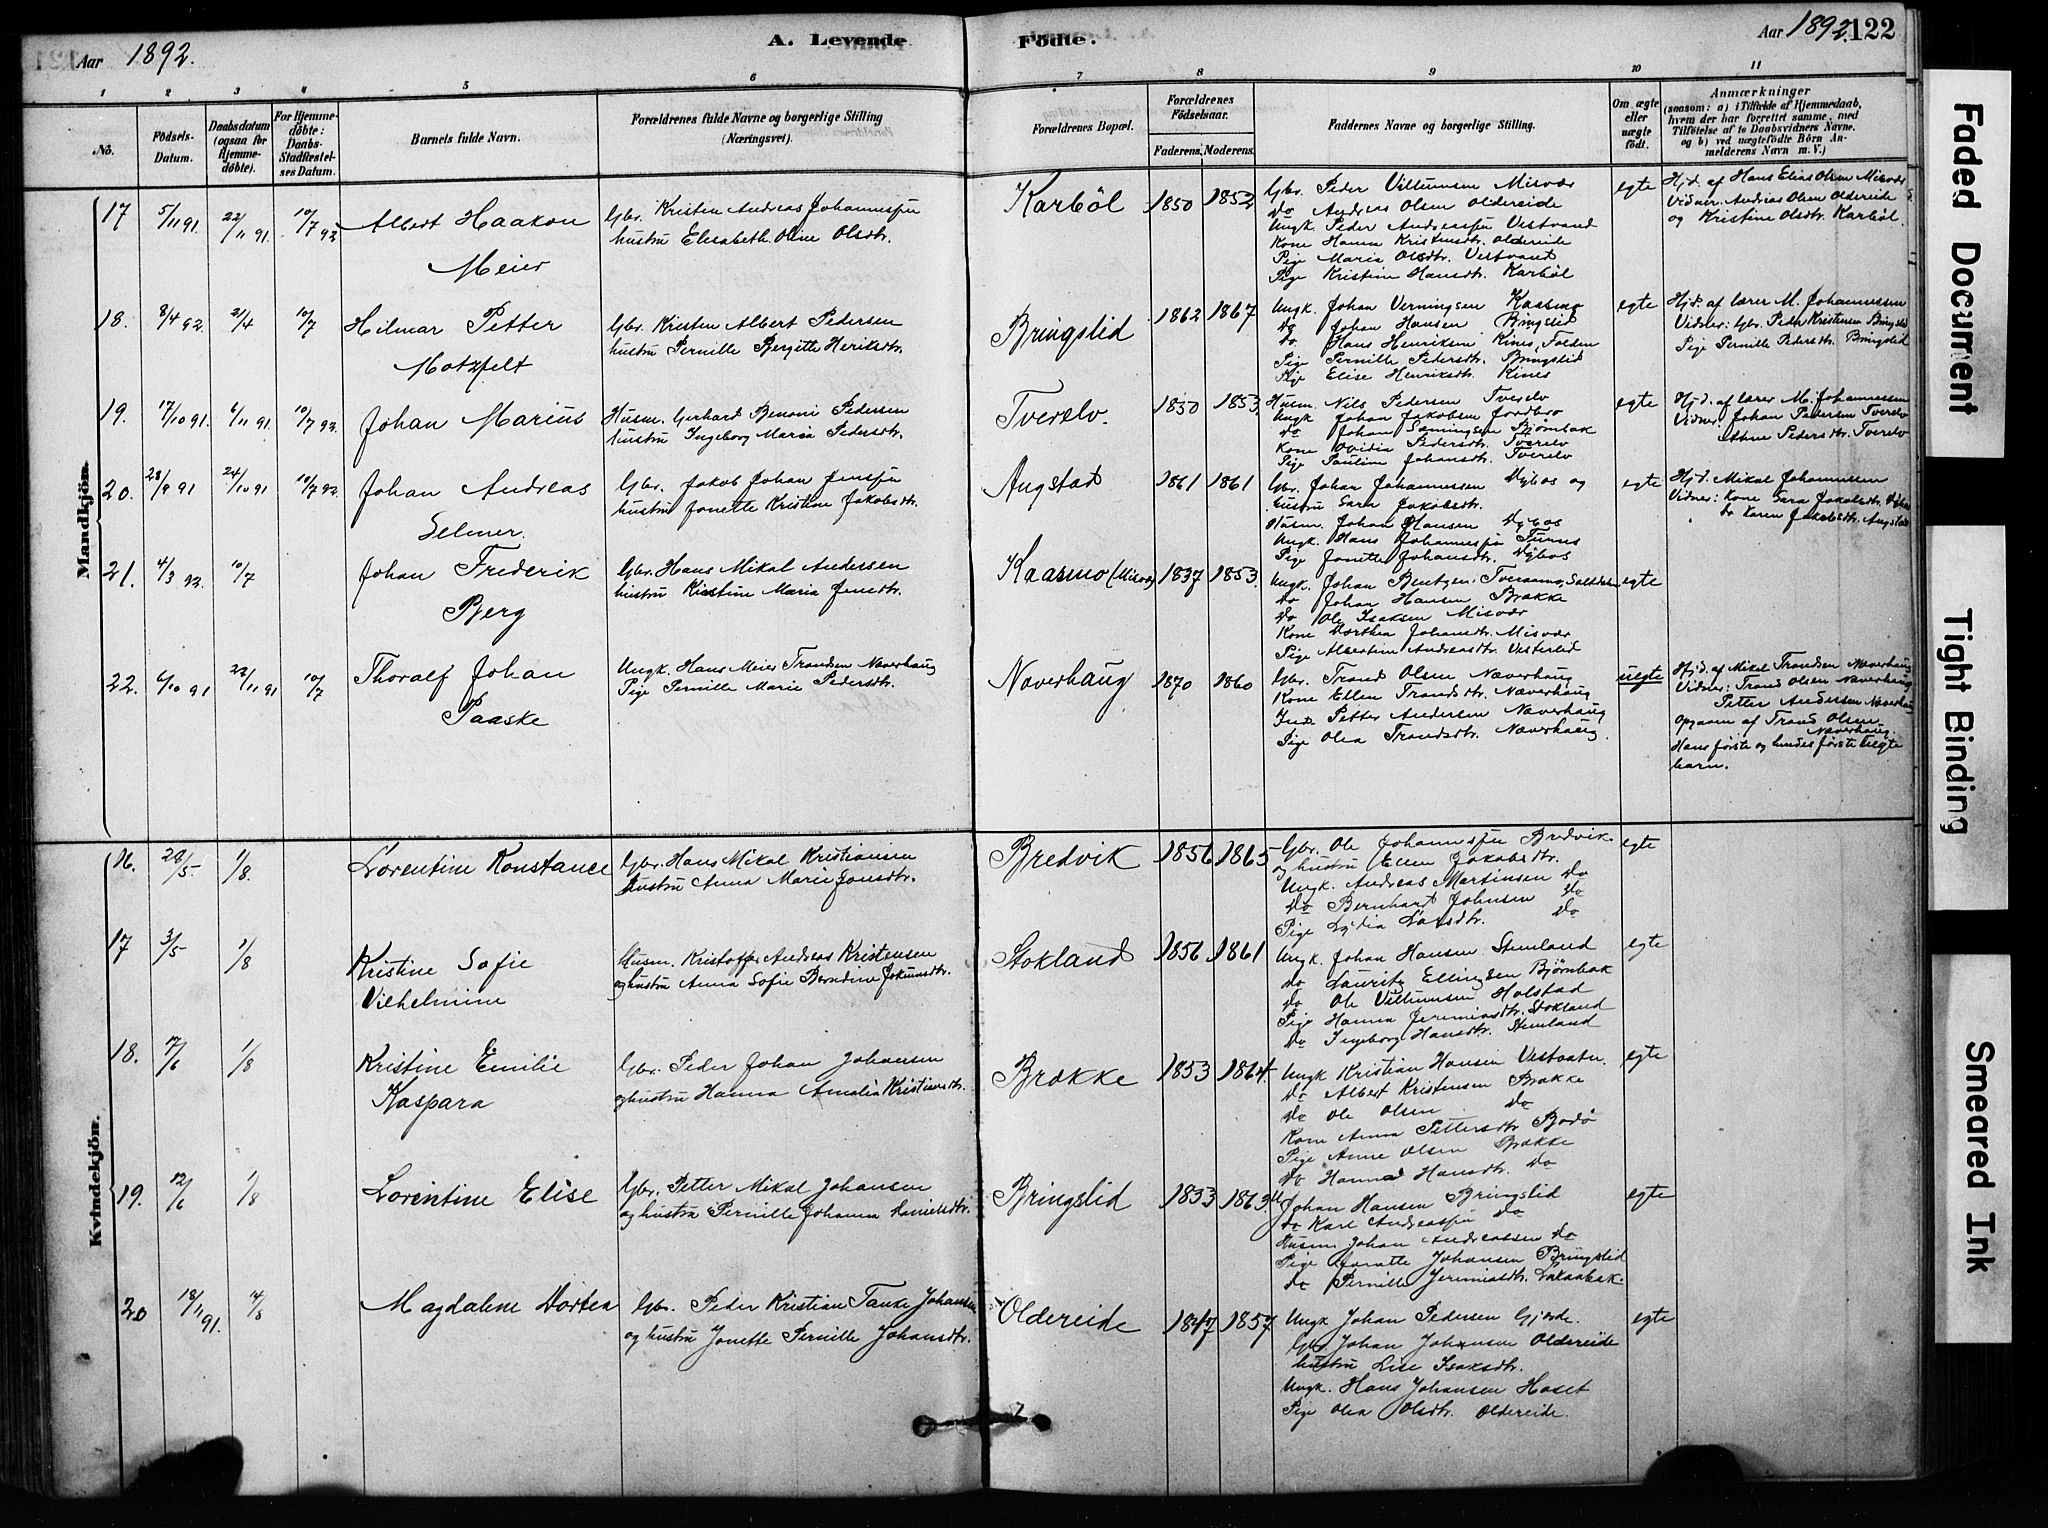 Aar 1892.
A. Levende Fødte.
Aar 1892. 122
1 2 3 4 5 6 7 8 9 10 11
No.
Fødsels-Datum.
Daabsdatum (ogsaa for Hjemme-døbte).
For Hjemme-døbte: Daabs-Stadfæstel-ses Datum.
Barnets fulde Navn.
Forældrenes fulde Navne og borgerlige Stilling (Næringsvei).
Forældrenes Bopæl.
Forældrenes Fødselsaar.
Faderens. Moderens.
Faddernes Navne og borgerlige Stilling.
Om ægte eller uægte født.
Anmærkninger
(saasom: a) i Tilfælde af Hjemmedaab, hvem der har forrettet samme, med Tilføielse af to Daabsvidners Navne. og b) ved uægtefødte Børn An-melderens Navn m. V.)
Mandkjön.
17 5/11 91 22/11 91 10/7 92 Albert Haakon Meier
Gbr. Kristen Andreas Johannessen
hustru Elisabeth Oline Olsdtr.
Karbøl 1850 1852
Gbr. Peder Villumsen Misvær
Do Andreas Olsen Oldereide
Ungk. Peder Andreassen Vestvand
Kone Hanna Kristensdtr. Oldereide
Pige Maria Olsdtr. Vestvand
Pige Kristine Hansdtr. Karbøl
egte
Hjd. af Hans Elias Olsen Misvær
Vidner. Andreas Olsen Oldereide
og Kristine Olsdtr. Karbøl
18. 8/4 92. 21/4 10/7 Hilmar Petter Motzfelt
Gbr. Kristen Albert Pedersen
hustru Pernille Bergitte Heriksdtr.
Bringslid 1862 1867
Ungk. Johan Verningsen Kaasmo
Do Johan Hansen Bringslid
Do. Hans Henriksen Kines, Folden
Pige Pernille Pedersdtr. Bringslid
Pige Elise Henriksdtr. Kines
egte
Hjd. af lærer M. Johannessen
Vidner: Gbr. Peder Kristensen Bringslid
Pige Pernille Pedersdtr. Bringslid
19. 17/10 91. 6/11 91. 10/7 92. Johan Marius
Husm. Gerhard Benoni Pedersen
hustru Ingeborg Maria Pedersdtr.
Tverelv. 1850 1853.
Husm. Nils Pedersen Tverelv
Ungk Johan Jakobsen Jordbro
Do Johan Sæmingsen Bjørnbak
Kone Ovidia Pedersdtr. Tverelv
Pige Pauline Johansdtr. Tverelv
egte
Hjd. af lærer M. Johannessen
Vidner: Johan Pedersen Tverelv
Pedersdtr. Tverelv
20. 28/9 91 24/10 91 10/7 92. Johan Andreas Selmer.
Gbr. Jakob Johan Jensen
hustru Jonette Kristine Jakobsdtr.
Angstad 1861 1861
Gbr. Johan Johannessen og
hustru Sara Jakobsdtr.
Husm. Johan Hansen
Ungk. Hans Johannessen
Pige Jonette Johansdtr.
egte
Hjd. Mikal Johannessen
Vidner: Kone Sara Jakobsdtr.
Do Karen Jakobsdtr. Angstad
21. 4/3 92. 10/7 Johan Frederik Berg
Gbr. Hans Mikal Andersen
hustru Kristine Maria Jensdtr.
Kaasmo (Misvær) 1837 1853.
Ungk. Johan Bentzen, Tveraamo, Saltdalen
Do Johan Hansen Brække
Do Ole Isaksen Misvær
Kone Dorthea Johansdtr. Misvær
Pige Albertine Andreasdtr. Vesterlid
egte
22. 6/10 91 22/11 91 10/7 Thoralf Johan Paaske
Ungk. Hans Meier Trondsen Næverhaug
Pige Pernille Marie Pedersdtr.
Næverhaug 1870 1860
Gbr. Trond Olsen Næverhaug
Kone Ellen Trondsdtr. Næverhaug
Petter Andersen Næverhaug
Pige Olea Trondsdtr. Næverhaug.
uegte
Hjd. af Mikal Trondsen Næverhaug
Vidner: Trond Olsen Næverhaug
Petter Andersen Næverhaug
Opgaven af Trond Olsen
Næverhaug.
Hans første og hendes første uegte
barn.
Kvindekjön.
16. 28/5 1/8. Lorentine Konstance
Gbr. Hans Mikal Kristiansen
hustru Anna Marie Jonsdtr.
Bredvik 1856 1865
Gbr. Ole Johannessen Bredvik
og hustru Ellen Jakobsdtr.
Ungk. Andreas Martinsen Do
Do Bernhard Johnsen Do
Pige Lydia Larsdtr. Do
egte
17 3/5 1/8 Kristine Sofie Vilhelmine
Husm. Kristoffer Andreas Kristensen
og hustru Anna Sofie Berndine
Stokland 1856 1861
Ungk. Johan Hansen Stemland
Do Lauritz Ellingsen Bjørnbak
Do Ole Villumsen Holstad
Pige Hanna Jeremiasdtr. Stokland
Do Ingeborg Hansdtr. Stemland
egte
18. 17/6 1/8 Kristine Emilie Kaspara
Gbr. Peder Johan Johansen
og hustru Hanna Amalia Kristiansdtr.
Brække 1853 1864.
Ungk Kristian Hansen Vestvatn.
Do Albert Kristensen Brække
Do Ole Olsen Do
Kone Anna Pettersdtr Bodø
Pige Anne Olsen Brække
Do Hanna Hansdtr. Do
egte
19. 12/6 1/8 Lorentine Elise
Gbr. Petter Mikal Johansen
og hustru Pernille Johanna Danielsdtr.
Bringslid 1833 1863.
Johan Hansen Bringslid
Do Karl Andreassen Do
Husm Johan Andreassen Do
Pige Jonette Johansen Bringslid
Do Pernille Jeremiasdtr.
egte
20 18/11 91. 14/8 Magdalene Dortea
Gbr. Peder Kristian Tanke Johansen
og hustru Jonette Pernille Johansdtr.
Oldereide 1847 1857
Ungk Johan Pedersen Gjærde.
Gbr. Johan Johansen Oldereide
hustru Lise Isaksdtr.
Ungk. Hans Johansen Hoset
Pige Olea Olsdtr. Oldereide.
egte
Faded Document
Tight Binding
Smeared Ink